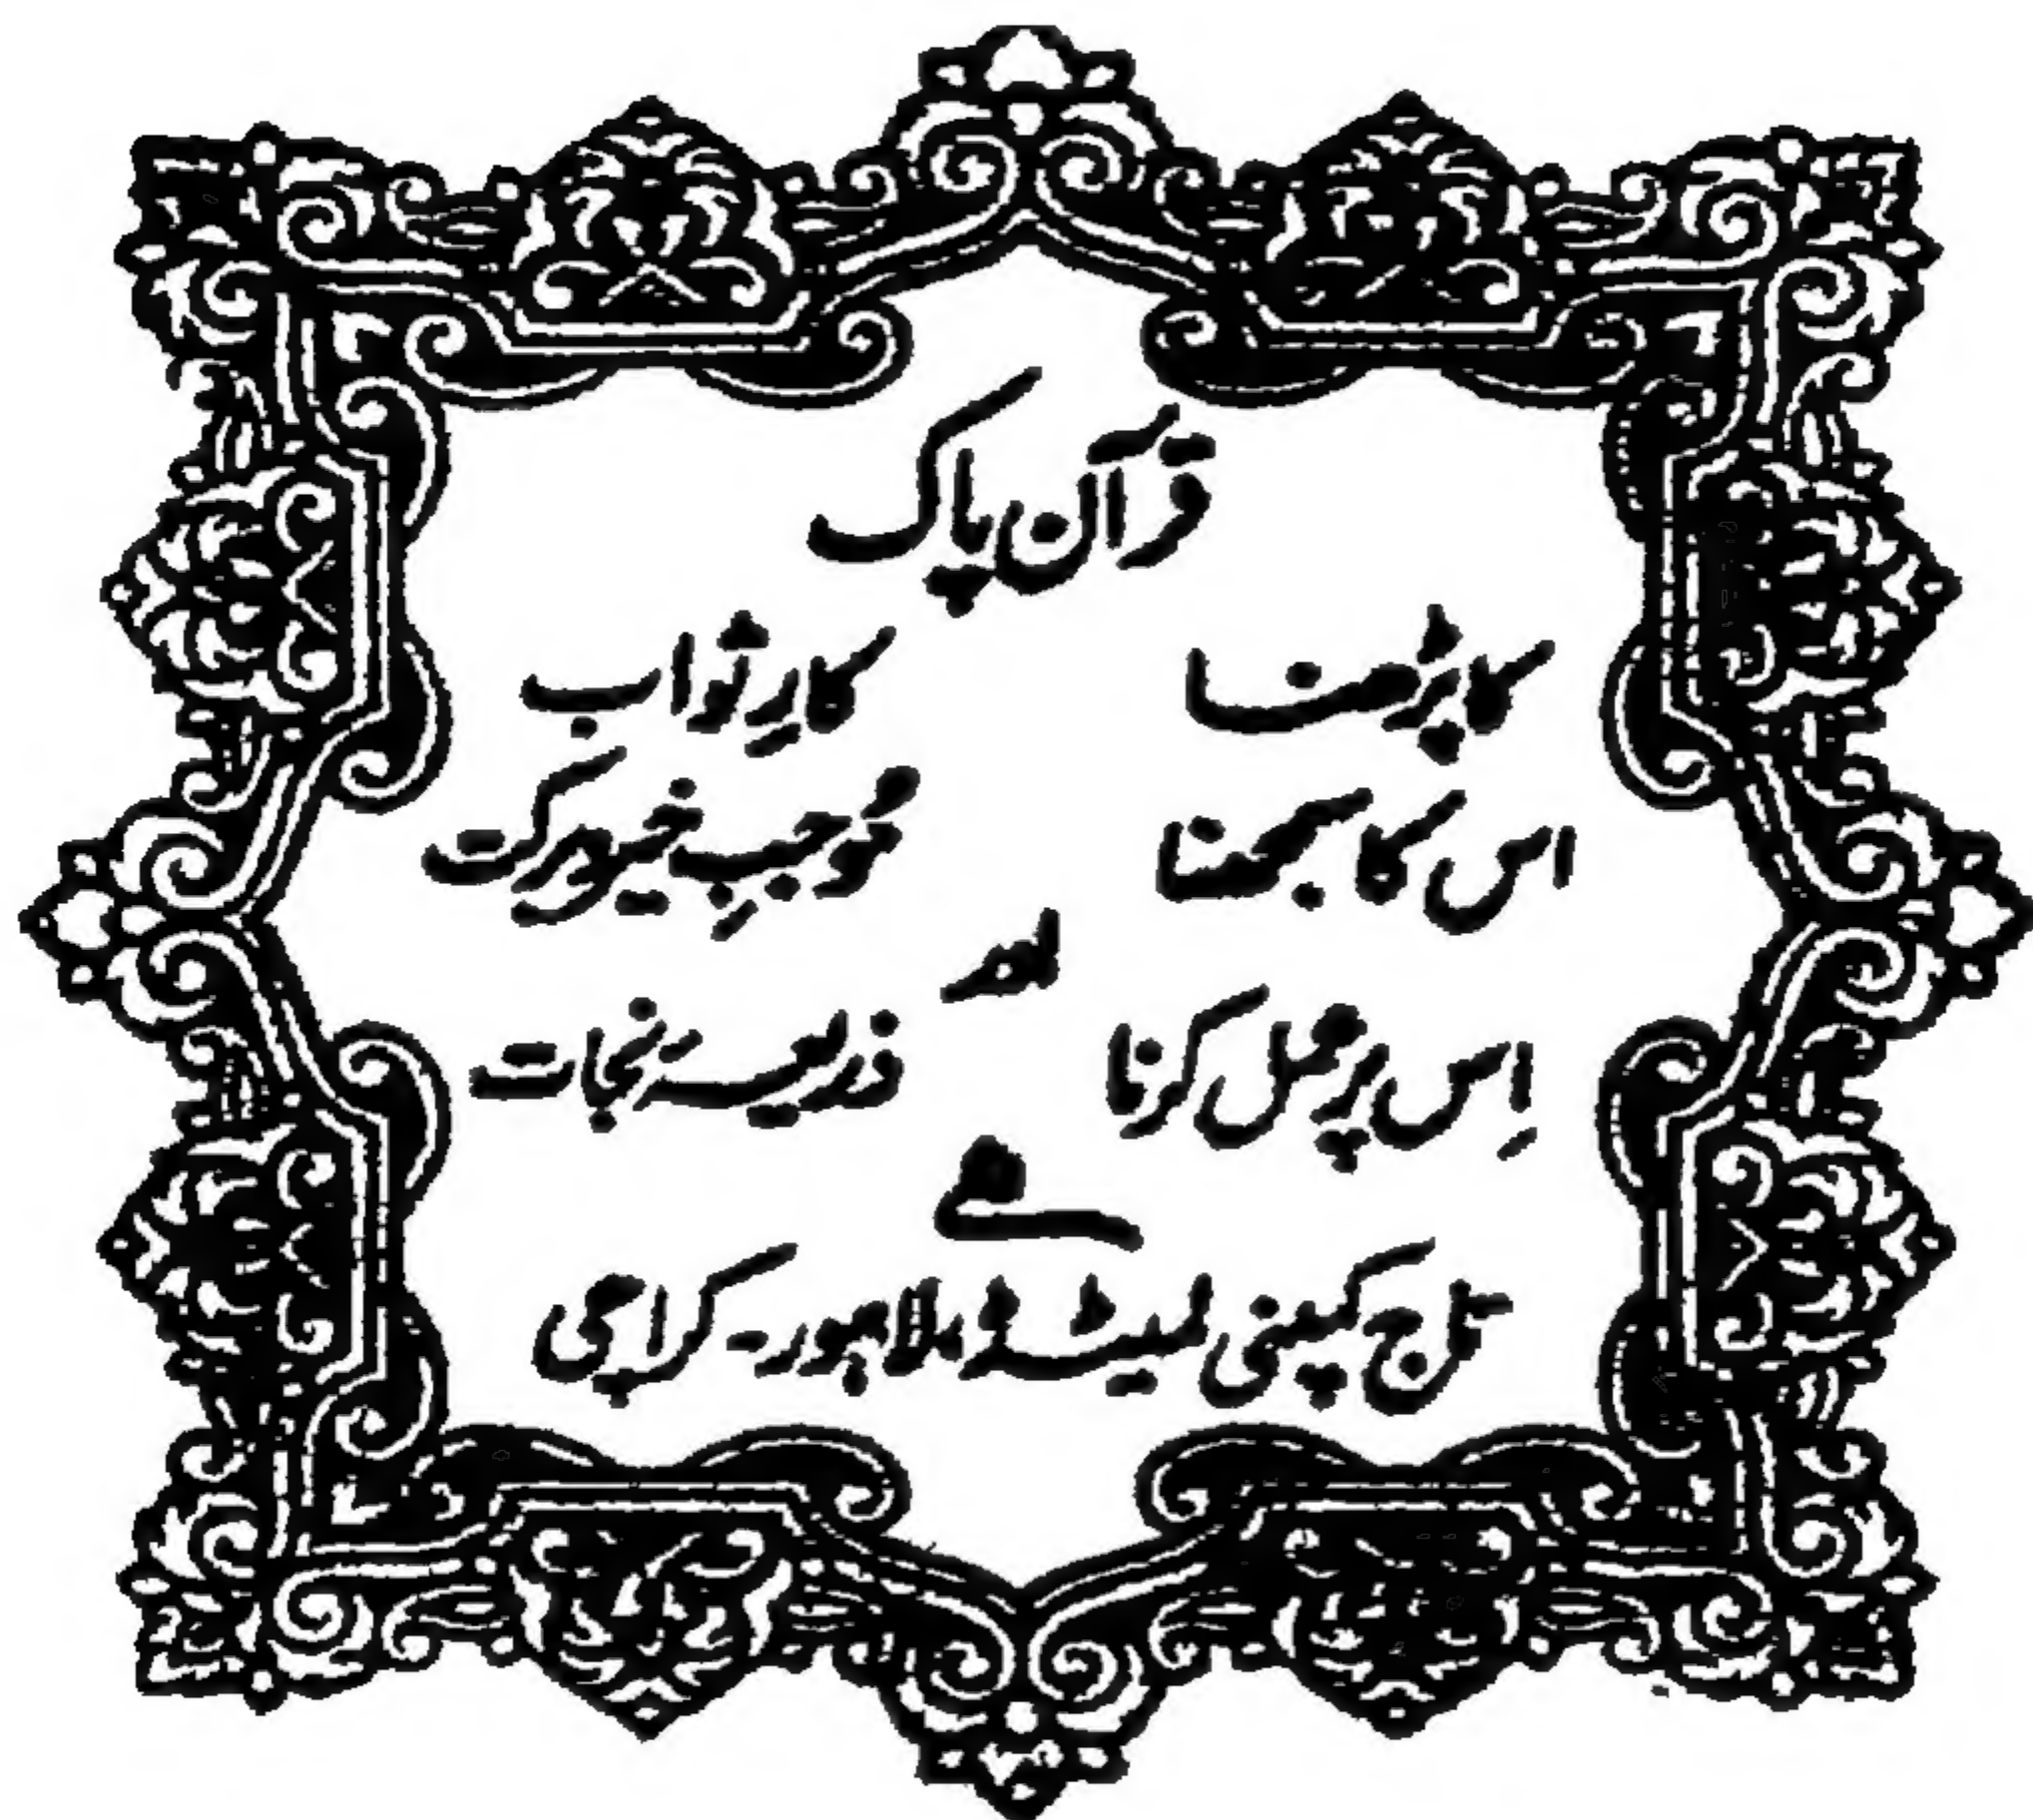 قرآن پاک
کا پڑھنا کارِ ثواب
اس کا سمجھنا مُوجبِ خیر و برکت
اور
اِس پر عمل کرنا ذریعۂ نجات
ہے
تاج کمپنی لمیٹڈ لاہور - کراچی